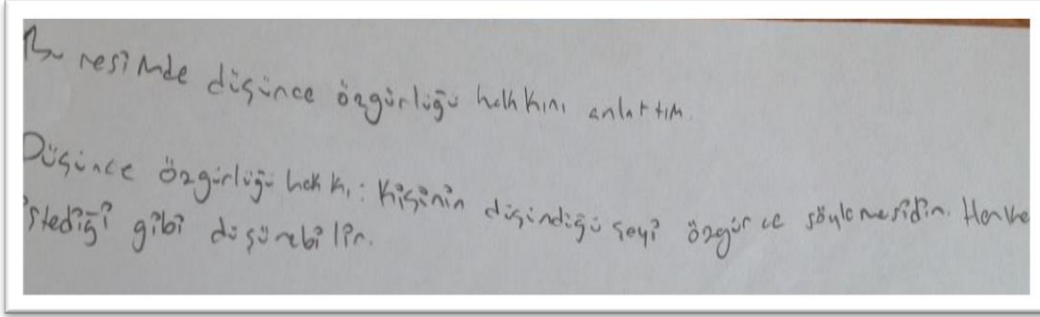 Bu resimde düşünce özgürlüğü hakkını anlattım.
Düşünce özgürlüğü hakkı: Kişinin düşündüğü şeyi özgürce söylemesidir. Herke
istediği gibi düşünebilir.